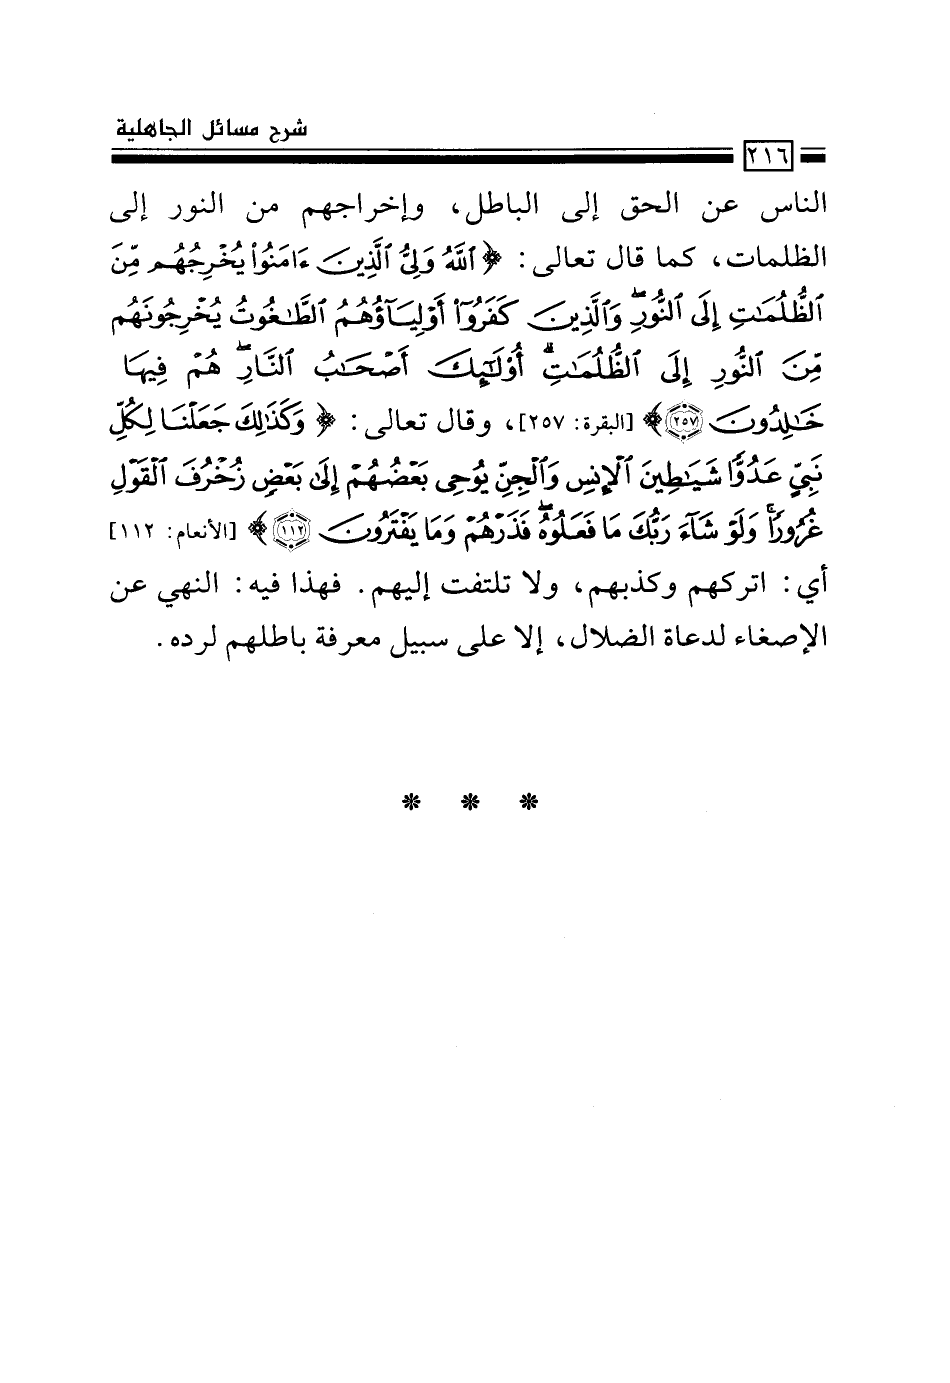 شرح مسائل الجاهلية
٢١٦
الناس عن الحق إلى الباطل، وإخراجهم من النور إلى
الظلمات، كما قال تعالى: ﴿ٱللَّهُ وَلِيُّ ٱلَّذِينَ ءَامَنُوا۟ يُخْرِجُهُم مِّنَ
ٱلظُّلُمَٰتِ إِلَى ٱلنُّورِۖ وَٱلَّذِينَ كَفَرُوٓا۟ أَوْلِيَآؤُهُمُ ٱلطَّٰغُوتُ يُخْرِجُونَهُم
مِّنَ ٱلنُّورِ إِلَى ٱلظُّلُمَٰتِۗ أُو۟لَٰٓئِكَ أَصْحَٰبُ ٱلنَّارِۖ هُمْ فِيهَا
خَٰلِدُونَ ٢٥٧﴾ [البقرة: ٢٥٧]، وقال تعالى: ﴿وَكَذَٰلِكَ جَعَلْنَا لِكُلِّ
نَبِيٍّ عَدُوًّا شَيَٰطِينَ ٱلْإِنسِ وَٱلْجِنِّ يُوحِى بَعْضُهُمْ إِلَىٰ بَعْضٍ زُخْرُفَ ٱلْقَوْلِ
غُرُورًاۚ وَلَوْ شَآءَ رَبُّكَ مَا فَعَلُوهُۖ فَذَرْهُمْ وَمَا يَفْتَرُونَ ١١٢﴾ [الأنعام: ١١٢]
أي: اتركهم وكذبهم، ولا تلتفت إليهم. فهذا فيه: النهي عن
الإصغاء لدعاة الضلال، إلا على سبيل معرفة باطلهم لرده.
* * *